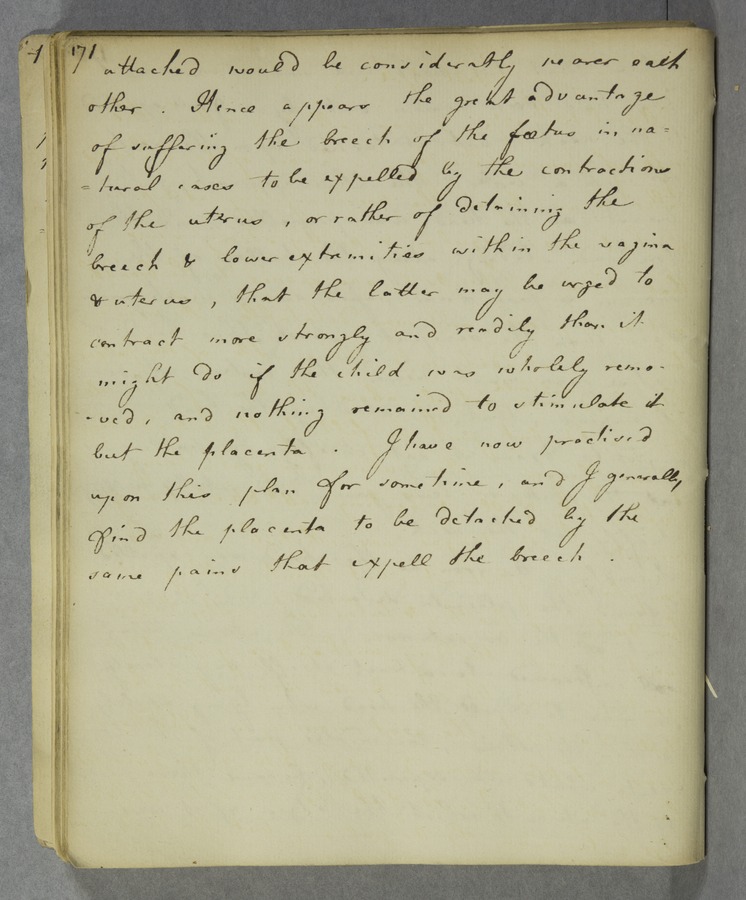 171
attached would be considerably nearer each
other. Hence appears the great advantage
of suffering the breech of the fœtus in na=
=tural cases to be expelled by the contractions
of the uterus, or rather of detaining the
breech & lower extremities within the vagina
& uterus, that the latter may be urged to
contract more strongly and readily than it
might do if the child was wholely remo-
-ved, and nothing remained to stimulate it
but the placenta. I have now practised
upon this plan for sometime, and I generally
find the placenta to be detached by the
same pains that expell the breech.